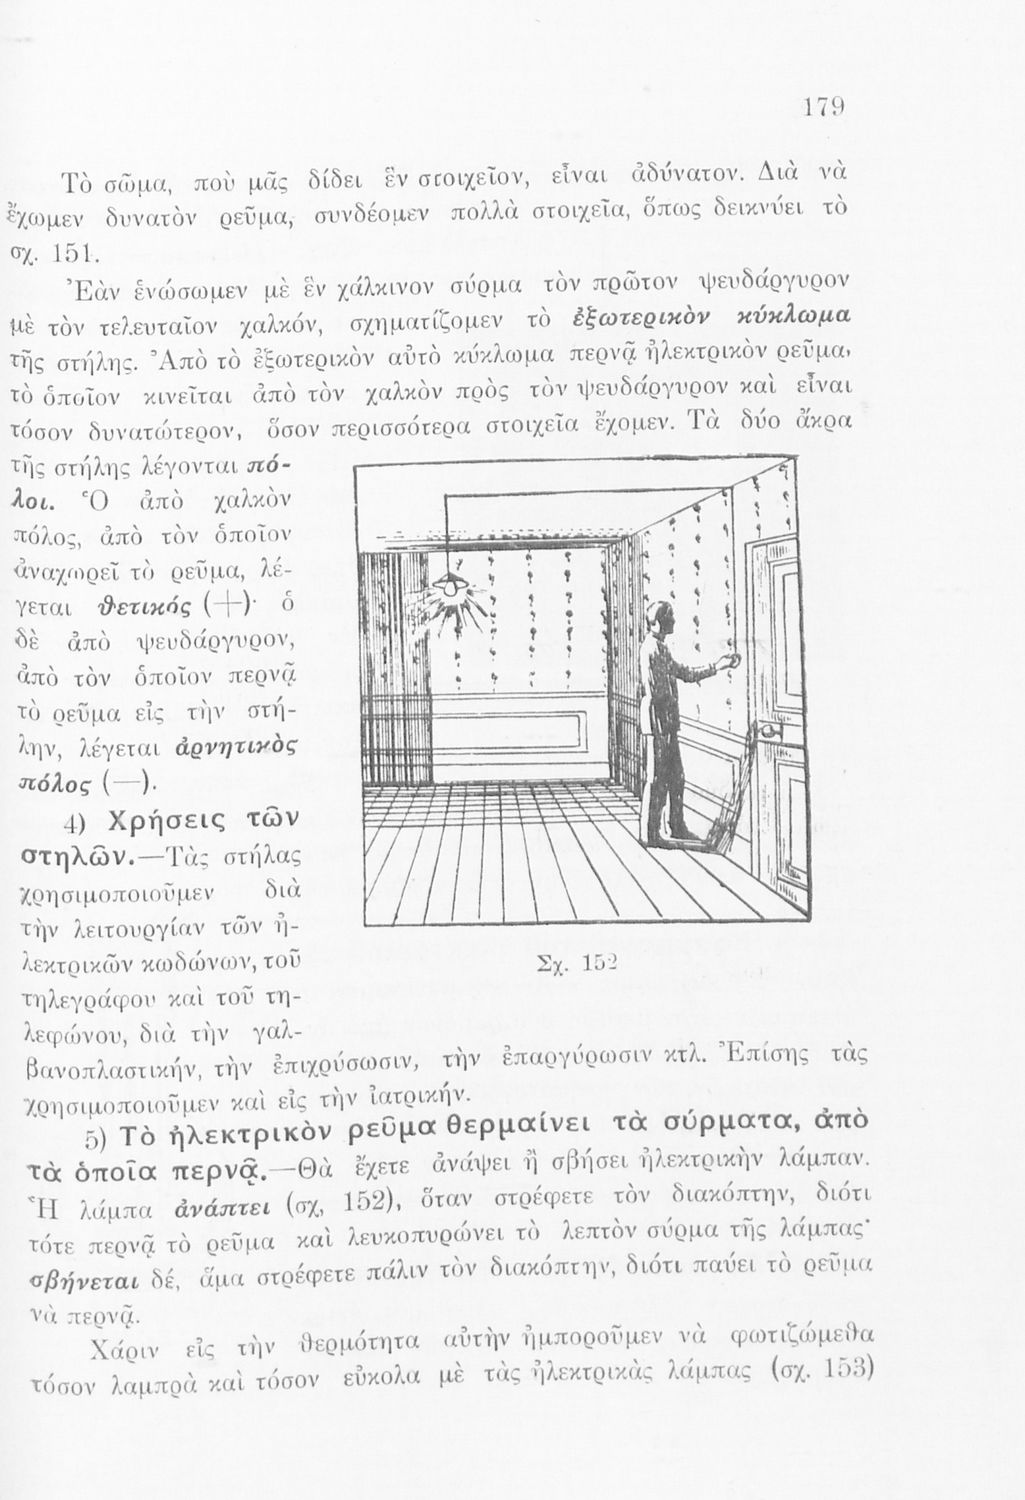 179
Τὸ σῶμα, ποὺ μᾶς δίδει ἓν στοιχεῖον, εἶναι ἀδύνατον. Διὰ νὰ
ἔχωμεν δυνατὸν ρεῦμα, συνδέομεν πολλὰ στοιχεῖα, ὅπως δεικνύει τὸ
σχ. 151.
Ἐὰν ἑνώσωμεν μὲ ἓν χάλκινον σύρμα τὸν πρῶτον ψευδάργυρον
μὲ τὸν τελευταῖον χαλκόν, σχηματίζομεν τὸ ἐξωτερικὸν κύκλωμα
τῆς στήλης. Ἀπὸ τὸ ἐξωτερικὸν αὐτὸ κύκλωμα περνᾷ ἠλεκτρικὸν ρεῦμα,
τὸ ὁποῖον κινεῖται ἀπὸ τὸν χαλκὸν πρὸς τὸν ψευδάργυρον καὶ εἶναι
τόσον δυνατώτερον, ὅσον περισσότερα στοιχεῖα ἔχομεν. Τὰ δύο ἄκρα
τῆς στήλης λέγονται πό-
λοι. Ὁ ἀπὸ χαλκὸν
πόλος, ἀπὸ τὸν ὁποῖον
ἀναχωρεῖ τὸ ρεῦμα, λέ-
γεται θετικός (+)· ὁ
δὲ ἀπὸ ψευδάργυρον,
ἀπὸ τὸν ὁποῖον περνᾷ
τὸ ρεῦμα εἰς τὴν στή-
λην, λέγεται ἀρνητικὸς
πόλος (—).
4) Χρήσεις τῶν
στηλῶν.—Τὰς στήλας
χρησιμοποιοῦμεν διὰ
τὴν λειτουργίαν τῶν ἠ-
λεκτρικῶν κωδώνων, τοῦ
τηλεγράφου καὶ τοῦ τη-
λεφώνου, διὰ τὴν γαλ-
βανοπλαστικήν, τὴν ἐπιχρύσωσιν, τὴν ἐπαργύρωσιν κτλ. Ἐπίσης τὰς
χρησιμοποιοῦμεν καὶ εἰς τὴν ἰατρικήν.
Σχ. 152
5) Τὸ ἠλεκτρικὸν ρεῦμα θερμαίνει τὰ σύρματα, ἀπὸ
τὰ ὁποῖα περνᾷ.—Θὰ ἔχετε ἀνάψει ἢ σβήσει ἠλεκτρικὴν λάμπαν.
Ἡ λάμπα ἀνάπτει (σχ. 152), ὅταν στρέφετε τὸν διακόπτην, διότι
τότε περνᾷ τὸ ρεῦμα καὶ λευκοπυρώνει τὸ λεπτὸν σύρμα τῆς λάμπας·
σβήνεται δέ, ἅμα στρέφετε πάλιν τὸν διακόπτην, διότι παύει τὸ ρεῦμα
νὰ περνᾷ.
Χάριν εἰς τὴν θερμότητα αὐτὴν ἠμποροῦμεν νὰ φωτιζώμεθα
τόσον λαμπρὰ καὶ τόσον εὔκολα μὲ τὰς ἠλεκτρικὰς λάμπας (σχ. 153)